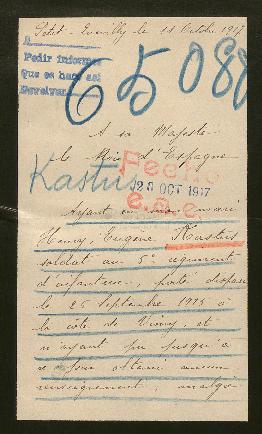 Petit-Quevilly le 11 Octobre 1917
Pedir informes
Que se hara asi
Devolver
65088
A sa Majesté
le Roi d'Espagne
Kastus
Fecho
20 OCT 1917
Ayant eu mon mari
Henry, Eugène Kastus
soldat au 5e régiment
d'infanterie, porté disparu
le 25 Septembre 1915 à
la côte de Vimy, et
n'ayant pu jusqu'à
ce jour obtenir aucun
renseignement, malgré